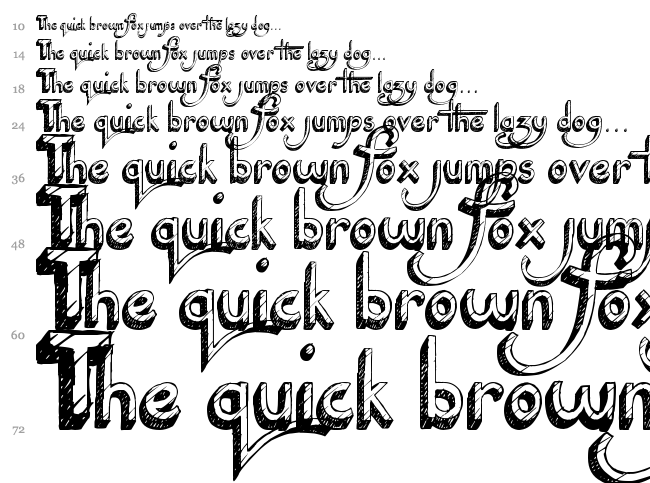 10 The quick brown fox jumps over the lazy dog...
14 The quick brown fox jumps over the lazy dog...
18 The quick brown fox jumps over the lazy dog...
24 The quick brown fox jumps over the lazy dog...
36 The quick brown fox jumps over
48 The quick brown fox
60 The quick brown
72 The quick brown